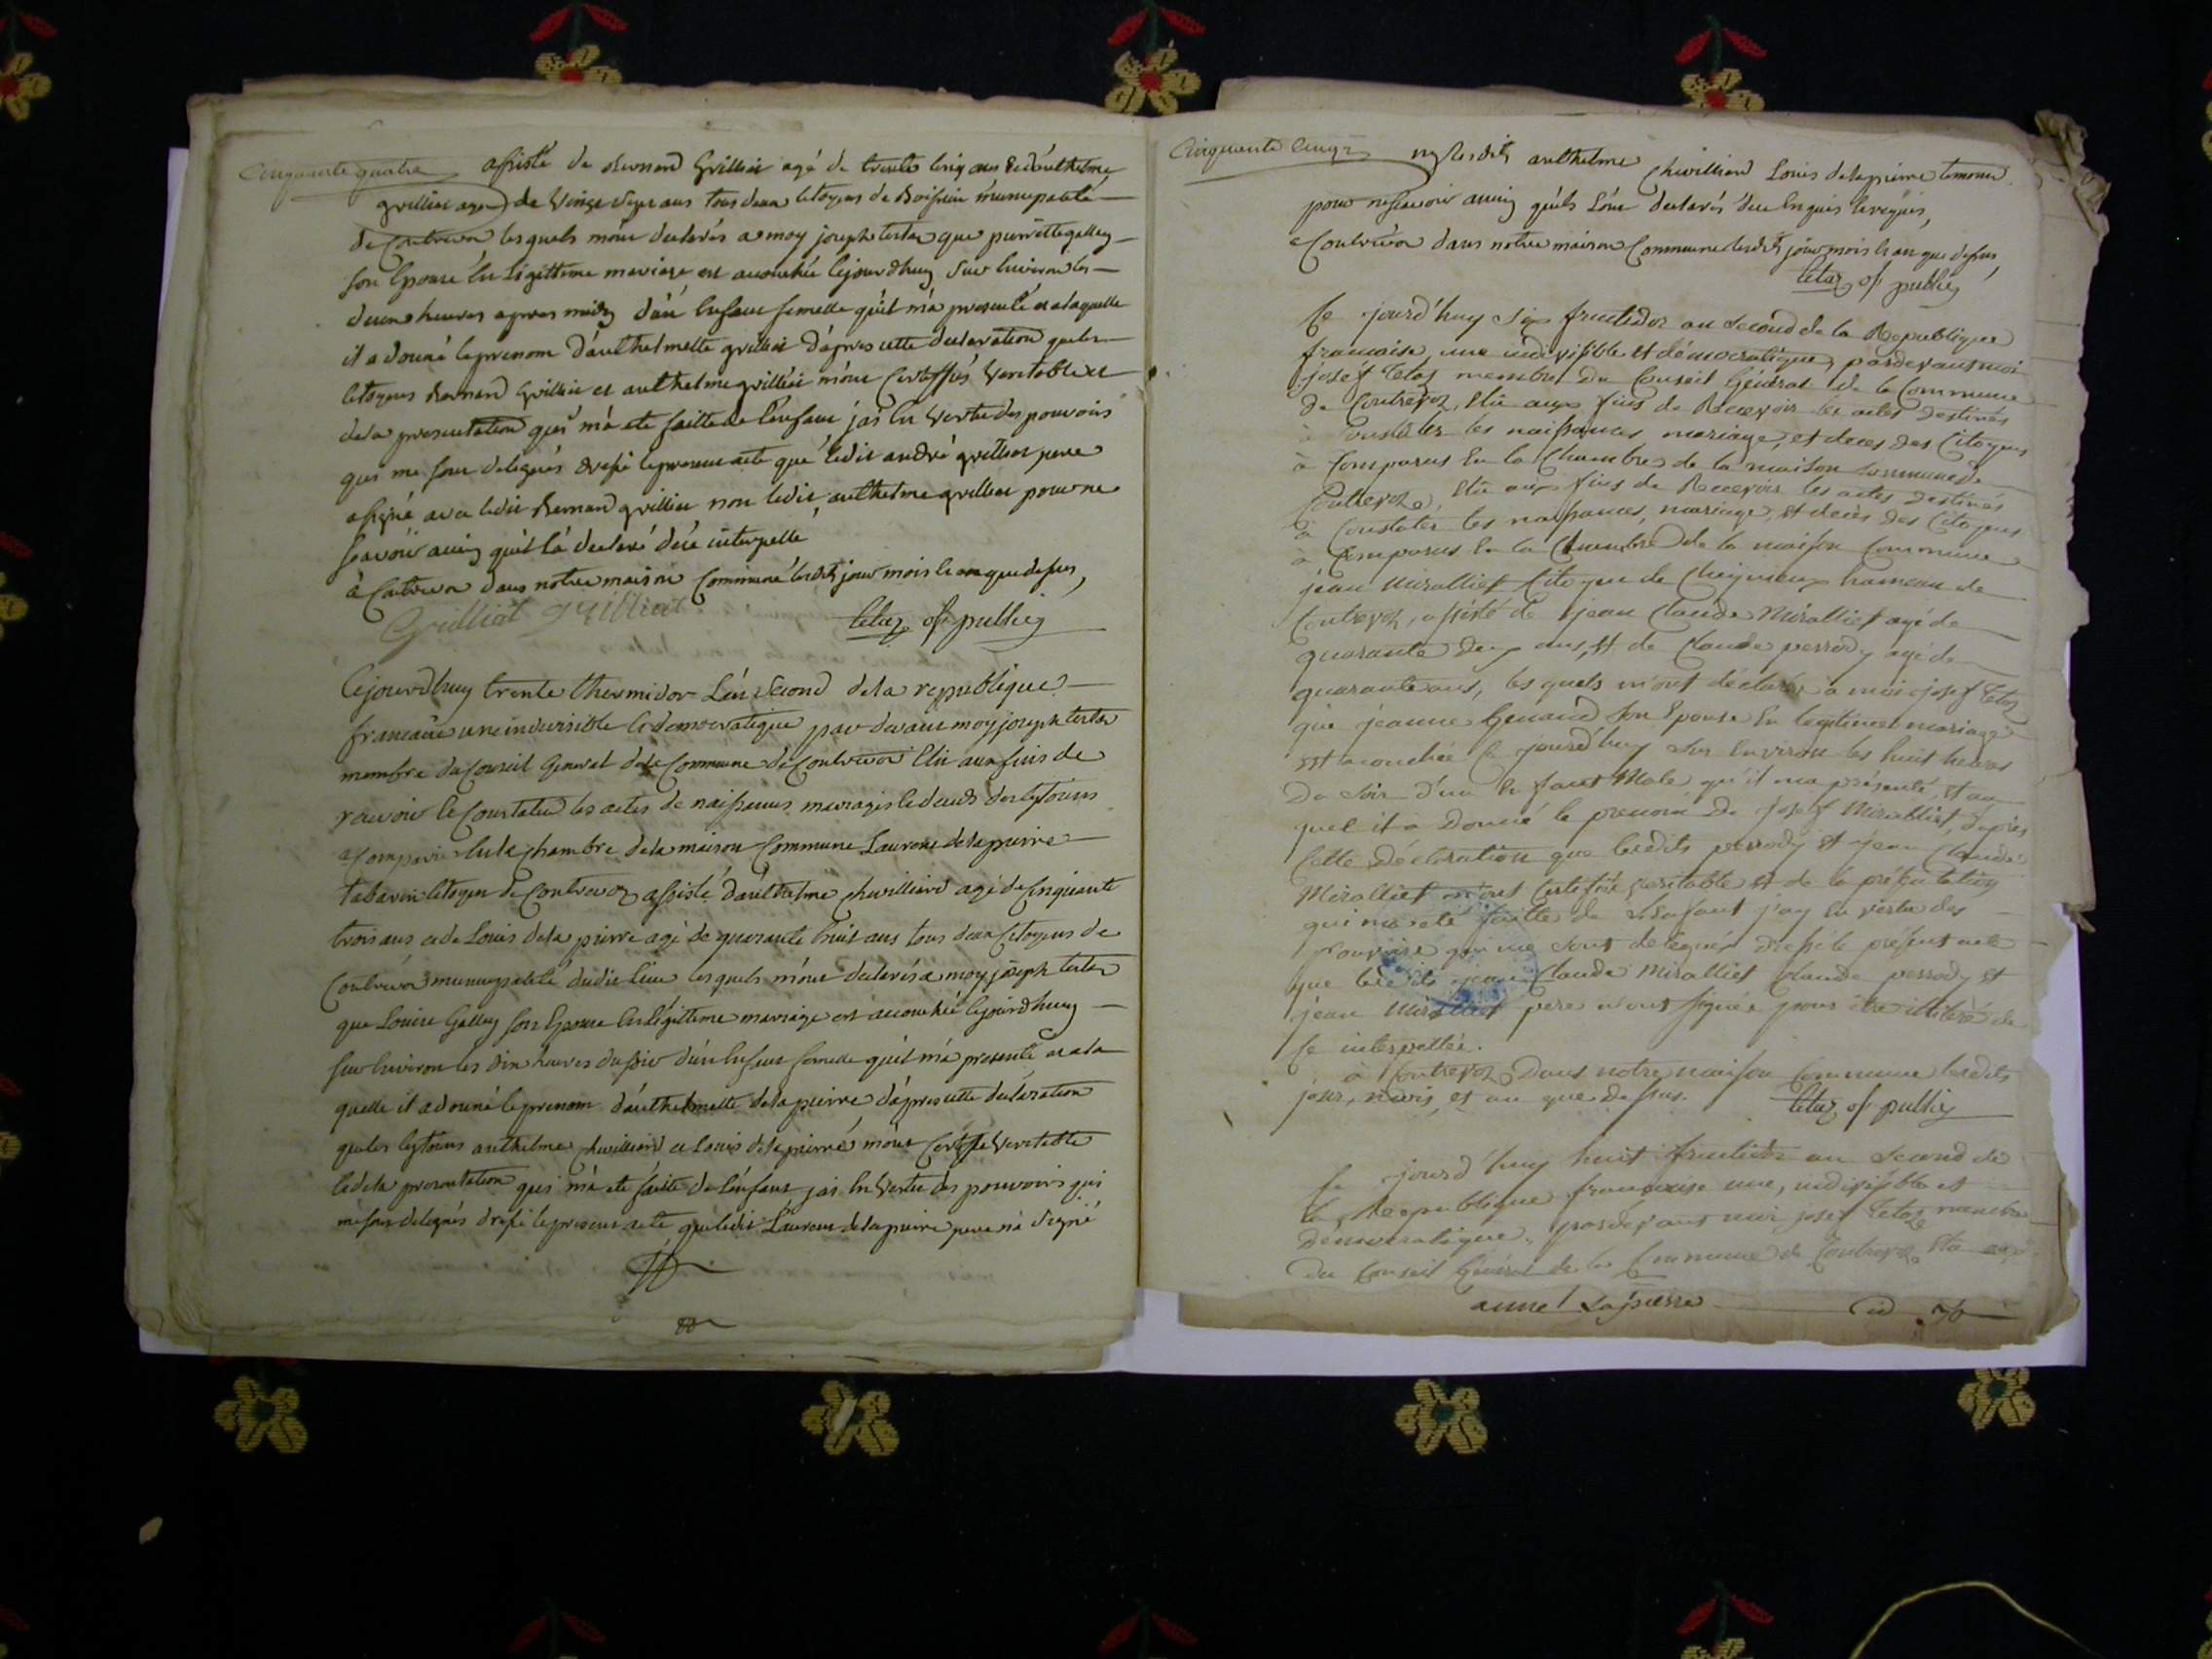 Cinquante quatre
assisté de Bernard Grilliet agé de trente cinq ans & d'anthelme
grilliet agé de vingt ans tous deux Citoyens de municipalité
de Contrevoz lesquels m'ont declarés a moy joseph tetaz que pierrette gallay
son Epouse En Legittime mariage est acouchée cejourdhuy sur lenviron les
heures apres midy d'un Enfant femelle qu'il m'a presenté et a laquelle
il a donné le prenom d'anthelmette grilliet d'apres cette declaration que les
citoyens Bernard Grilliet et anthelme grilliet m'ont Certiffiés veritable et
de la presentation qui m'a eté faitte de l'enfant j'ai En vertu des pouvoirs
qui me sont delegués dressé le present acte que ledit andré grilliet pere
a signé avec ledit Bernard grilliet non ledit anthelme grilliet pour ne
scavoir ainsy qu'il l'a declaré de ce interpellé
à Contrevoz dans notre maison Commune lesdits jour mois et an que dessus
Grilliet grilliet
tetaz of. public
Cejourdhuy trente thermidor L'an Second de la republique
francaise une indivisible & democratique par devant moy joseph tetaz
membre du Conseil General de la Commune de Contrevoz Elu aux fins de
recevoir & Constater les actes de naissances mariages & deces des Citoiens
a Comparu En la chambre de la maison Commune Laurent delapierre
Citoyen de Contrevoz assisté d'anthelme chevilliard agé de Cinquante
trois ans et de Louis delapierre agé de quarante huit ans tous deux Citoyens de
Contrevoz municipalité dudit lieu lesquels m'ont declarés a moy joseph tetaz
que Louise Gallay son Epouse En Legittime mariage est acouchée cejourdhuy
sur lenviron les dix heures du soir d'un Enfant femelle qu'il m'a presenté et a la
quelle il a donné le prenom d'anthelmette delapierre d'apres cette declaration
que les Citoiens anthelme chevilliard et Louis delapierre m'ont Certiffié veritable
& de la presentation qui m'a eté faitte de l'enfant j'ai En vertu des pouvoirs qui
me sont delegués dressé le present acte que ledit Laurent delapierre pere n'a signé
Cinquante Cinq
ny lesdits anthelme chevilliard Louis delapierre temoins
pour ne scavoir ainsy qu'ils l'ont declarés de ce Enquis & requis
a Contrevoz dans notre maison Commune lesdits jour mois & an que dessus
tetaz of. public
Ce jourd'huy six fructidor an second de la Republique
francaise, une indivisible et démocratique pardevant moi
josef Tetaz membre du Conseil Général de la Commune
de Contrevoz, Elu aux fins de Recevoir les actes destinés
à Constater les naissances mariage, et deces des Citoyens
à Comparus En la Chambre de la maison commune de
Contrevoz, Elu aux fins de Recevoir les actes destinés
à Constater les naissances, mariage, et deces des Citoyens
à Comparus En la Chambre de la maison Commune
jean Miralliet Citoyen de Cheignieux hameau de
Contrevoz, assisté de jean Claude Miralliet agé de
quarante deux ans, et de Claude perrody agé de
quarante ans, les quels m'ont déclarés à moi josef Tetaz
que jeanne Genand son Epouse En legitime mariage
est acouchée ce jourd'huy sur lenviron les huit heures
du soir d'un Enfant Male, qu'il m'a présenté, et au
quel il à donné le prenom de josef Miralliet, d'après
Cette déclaration que lesdits perrody et jean Claude
Miralliet m'ont Certifiée veritable et de la présentation
qui m'a eté faitte de l'Enfant j'ay En vertu des
Pouvoirs qui me sont delegués dressé le présent acte
que lesdits jean Claude Miralliet Claude perrody et
jean Miralliet pere n'ont signée pour être illitéré de
Ce interpellée.
à Contrevoz Dans notre maison Commune lesdits
jour, mois, et an que dessus.
tetaz of. public
Ce jourd'huy huit fructidor an second de
la Republique française une, indivisible et
démocratique. pardevant moi josef Tetaz membre
du Conseil Général de la Commune de Contrevoz. Elu aux
anne Lapierre id. 76